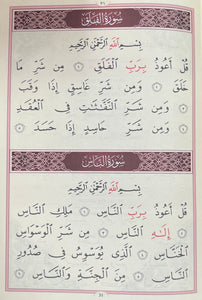 سُورَةُ الفَلَقِ
بِسْمِ اللَّهِ الرَّحْمَٰنِ الرَّحِيمِ
قُلْ أَعُوذُ بِرَبِّ الْفَلَقِ ١ مِن شَرِّ مَا
خَلَقَ ٢ وَمِن شَرِّ غَاسِقٍ إِذَا وَقَبَ
٣ وَمِن شَرِّ النَّفَّاثَاتِ فِي الْعُقَدِ
٤ وَمِن شَرِّ حَاسِدٍ إِذَا حَسَدَ ٥
سُورَةُ النَّاسِ
بِسْمِ اللَّهِ الرَّحْمَٰنِ الرَّحِيمِ
قُلْ أَعُوذُ بِرَبِّ النَّاسِ ١ مَلِكِ النَّاسِ
٢ إِلَٰهِ النَّاسِ ٣ مِن شَرِّ الْوَسْوَاسِ
الْخَنَّاسِ ٤ الَّذِي يُوَسْوِسُ فِي صُدُورِ
النَّاسِ ٥ مِنَ الْجِنَّةِ وَالنَّاسِ ٦